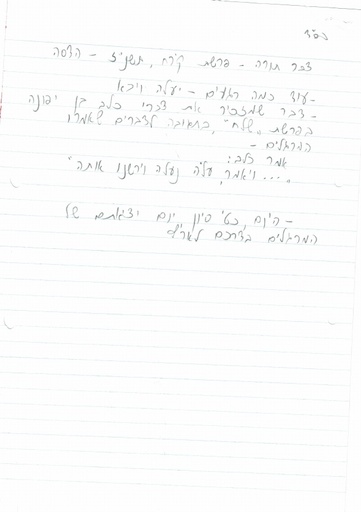 בס"ד
דבר תורה - פרשת קרח, תשנ"ז - הדסה
- עוד כמה רגעים - יעלה ויבא
- דבר שמזכיר את דברי כלב בן יפונה
בפרשת "שלח", בתגובה לדברים שאמרו
המרגלים -
אמר כלב:
"... ויאמר, עלה נעלה וירשנו אותה"
- היום, כט' סיון, יום יציאתם של
המרגלים בדרכם לארץ